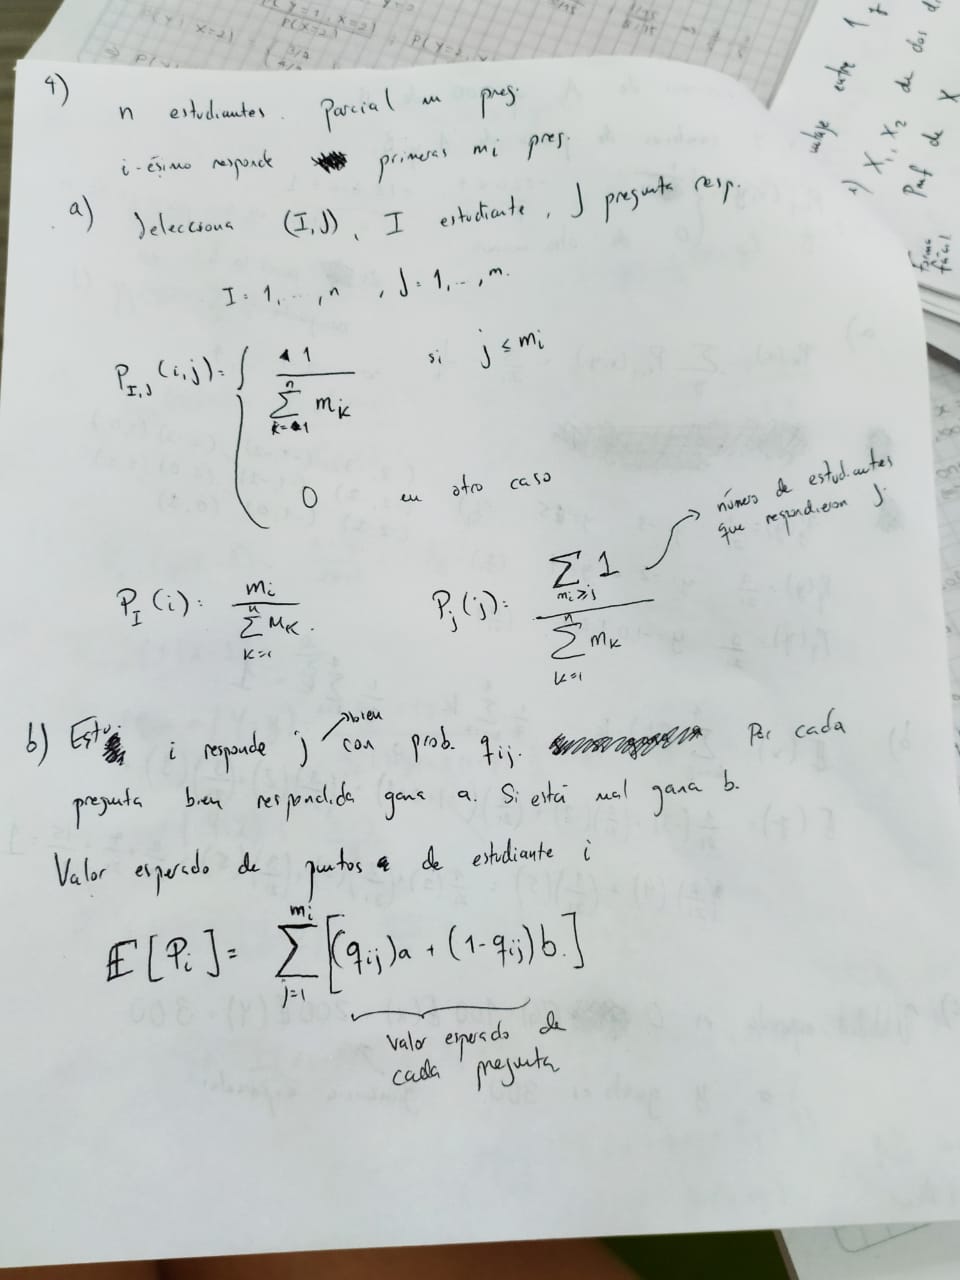 4)
n estudiantes. Parcial m preg.
i-ésimo responde primeras mi preg.
a) Selecciona (I,J), I estudiante, J pregunta resp.
I = 1, ..., n , J = 1, ..., m.
P_{I,J}(i,j) = { 1 / \sum_{k=1}^{n} m_k si j ≤ mi
0 en otro caso
número de estudiantes
que respondieron j.
P_I(i) = mi / \sum_{k=1}^{n} m_k. P_j(j) = \sum_{mi ≥ j} 1 / \sum_{k=1}^{n} m_k
b) Estu. i responde j bien con prob. q_{ij}. Por cada
pregunta bien respondida gana a. Si está mal gana b.
Valor esperado de puntos de estudiante i
E[P_i] = \sum_{j=1}^{mi} [(q_{ij})a + (1-q_{ij})b.]
Valor esperado de
cada pregunta
P(X=2)
entre 1 y
X_1, X_2 de dos
Pmf de X
Forma
fácil